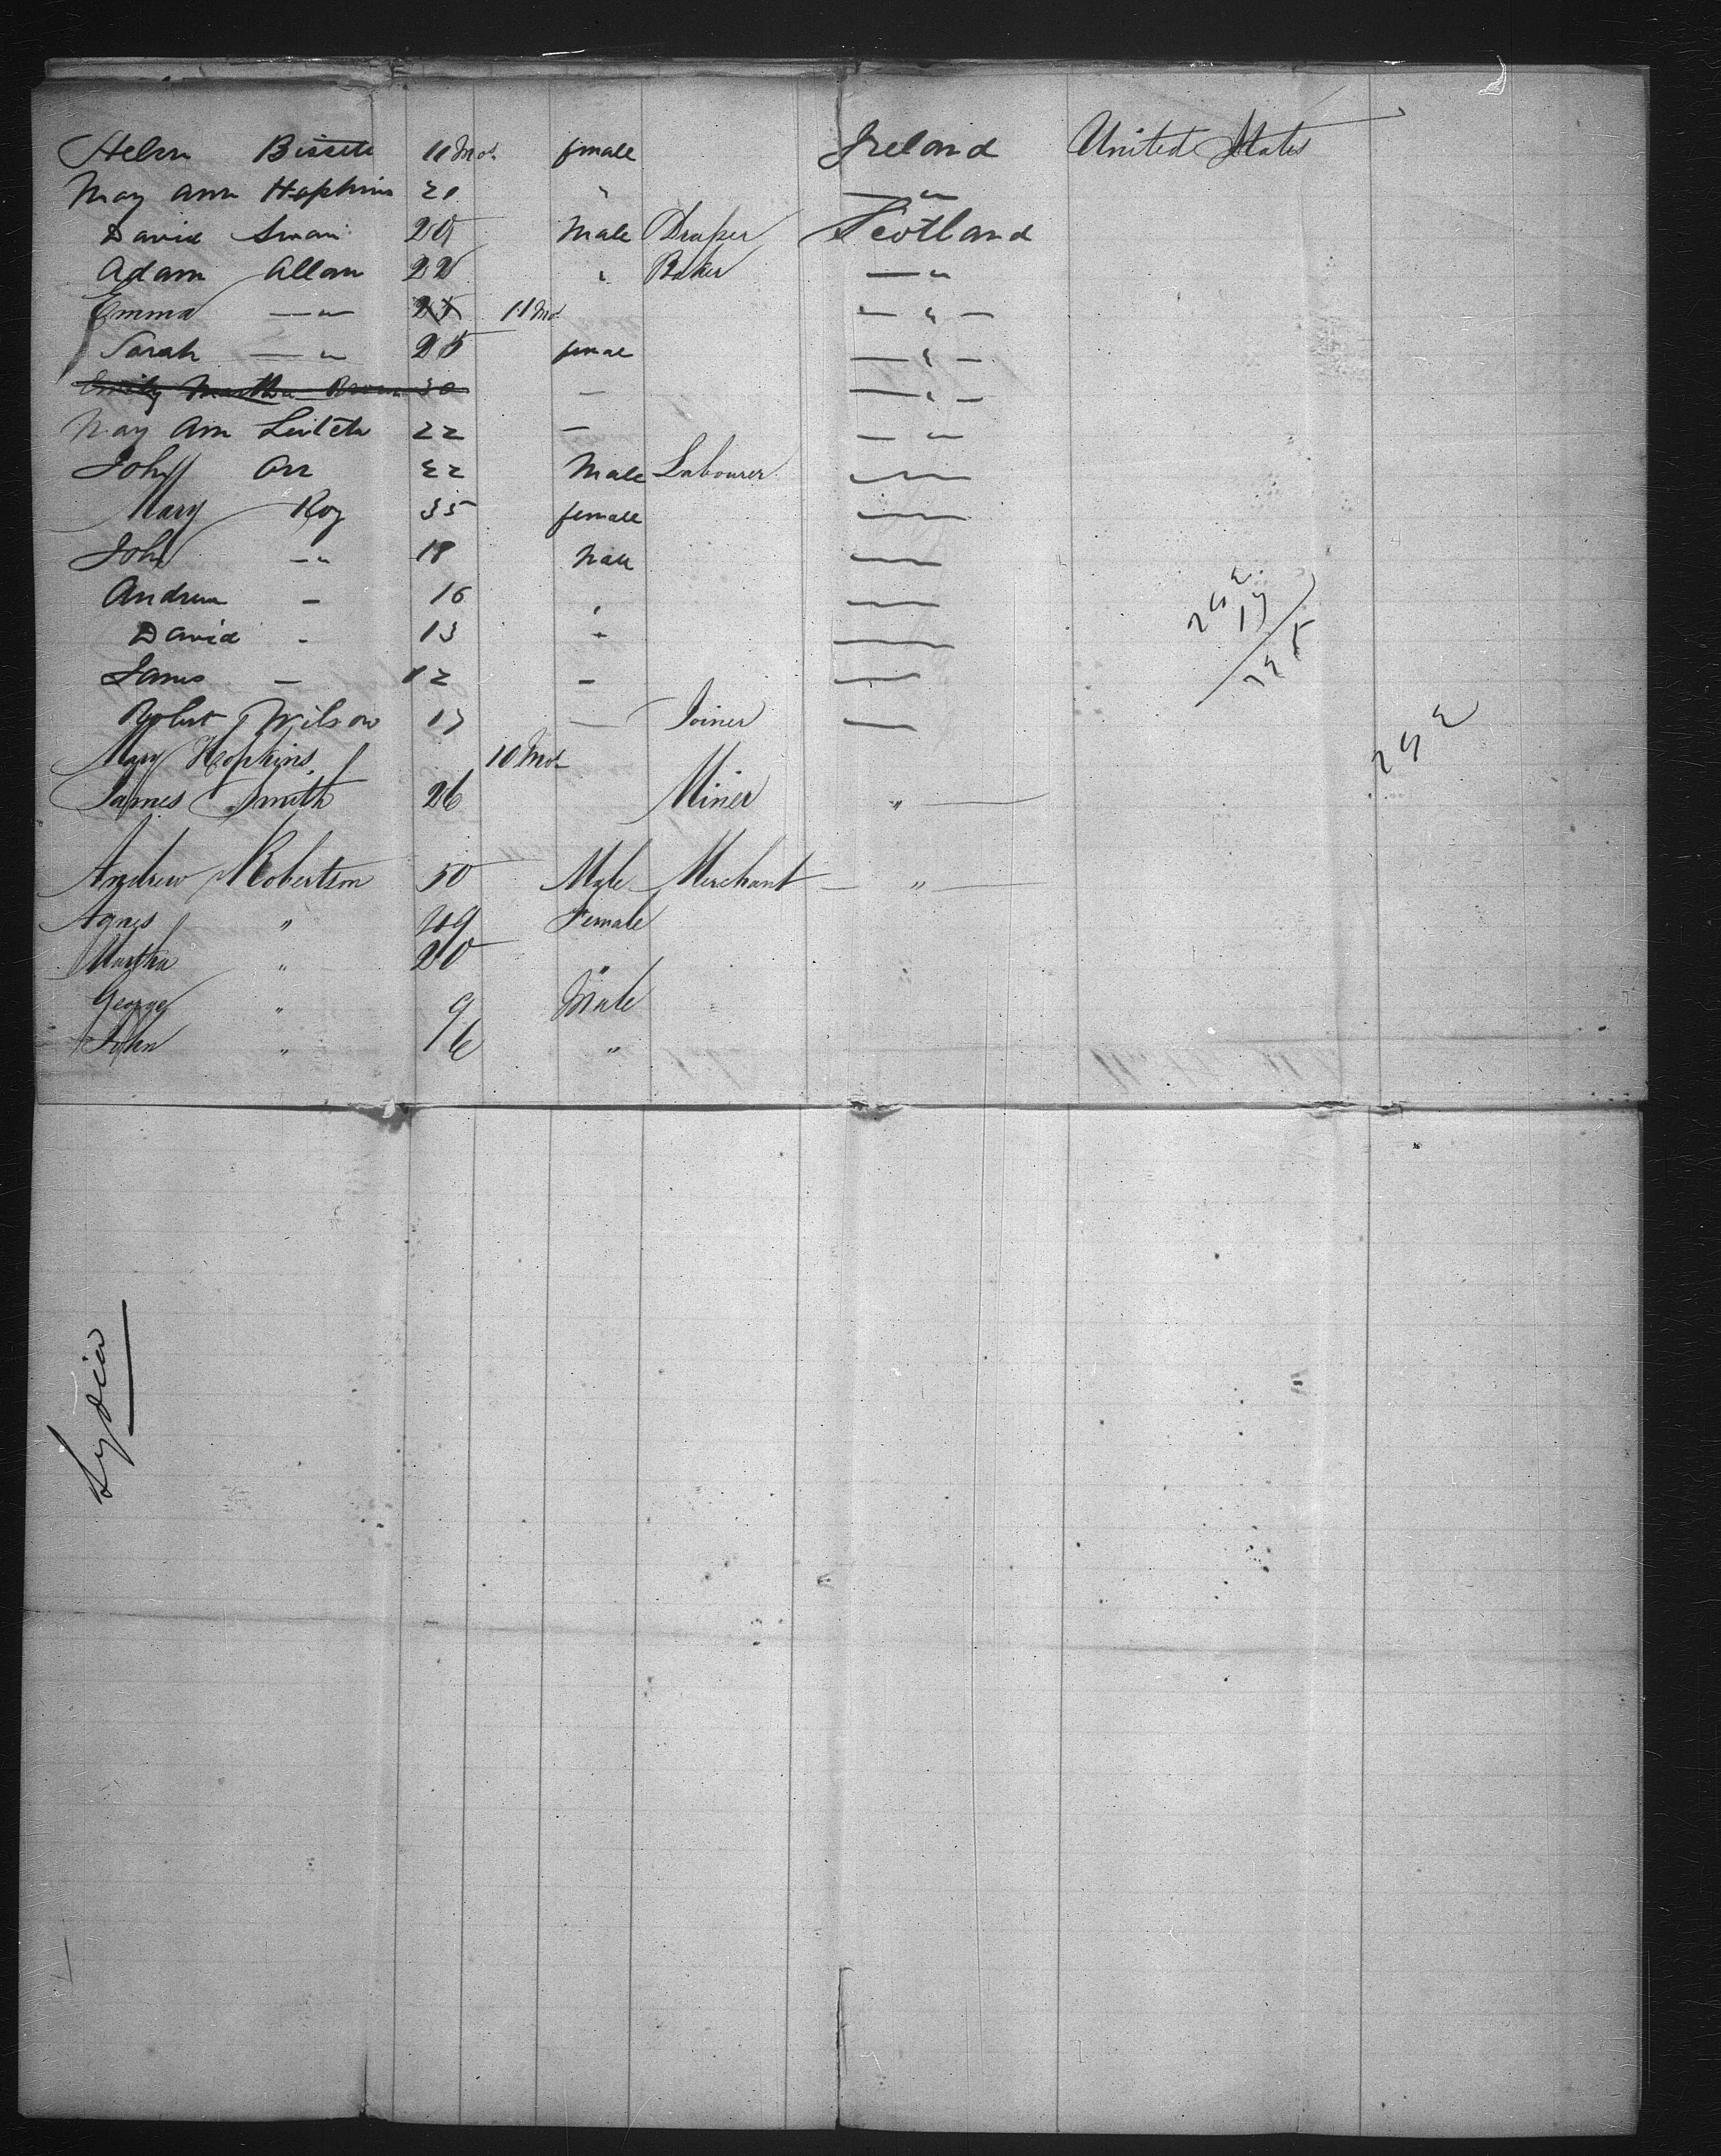 Helen Bissett 11 Mos female Ireland United States
May Ann Hopkins 21 " — "
David Swan 20 Male Draper Scotland
Adam Allan 22 " Baker — "
Emma — " 11 Mo — " —
Sarah — " 25 female — " —
Emily Martha Brown 30 — — " —
May Ann Leitch 22 — — "
John Orr 22 Male Labourer —
Mary Roy 35 female —
John — " 18 Male —
Andrew — 16 " —
David - 13 " —
James — 12 — —
Robert Wilson 17 — Joiner —
Mary Hopkins 10 Mos
James Smith 26 Miner " —
Andrew Robertson 50 Male Merchant — " —
Agnes " 49 Female
Martha " 20 "
George " 9 Male
John " 6 "
Lydia